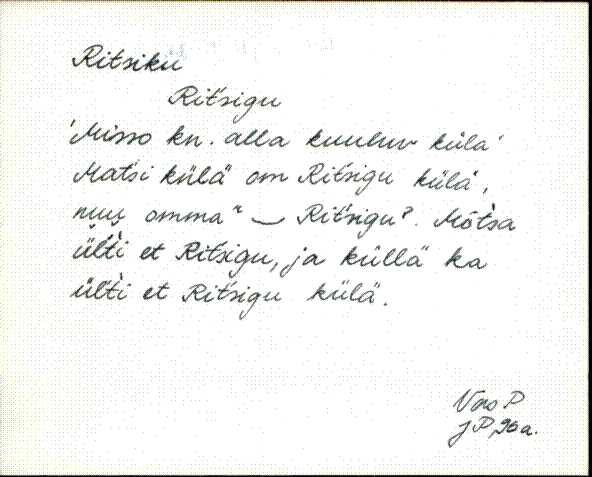 Ritsiku
Rit́sigu
'Misso kn. alla kuuluv külä'
Mat́si külä om Rit́sigu külä,
omma Rit́sigu?. Mõt̀sa
ült̀i et Rit́sigu, ja küllä ka
ült̀i et Rit́sigu külä.